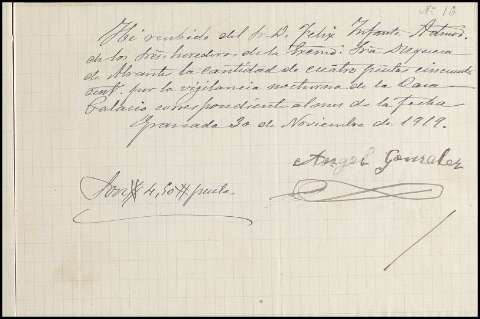 Nº 10
He recibido del Sr. D. Felix Infante Admor.
de los Sres. herederos de la Excma. Sra. Duquesa
de Abrante la cantidad de cuatro pesetas cincuenta
cent. por la vigilancia nocturna de la Casa
Palacio correspondiente al mes de la fecha
Granada 30 de Noviembre de 1919.
Angel Gonzalez
Son # 4,50 # pesetas.